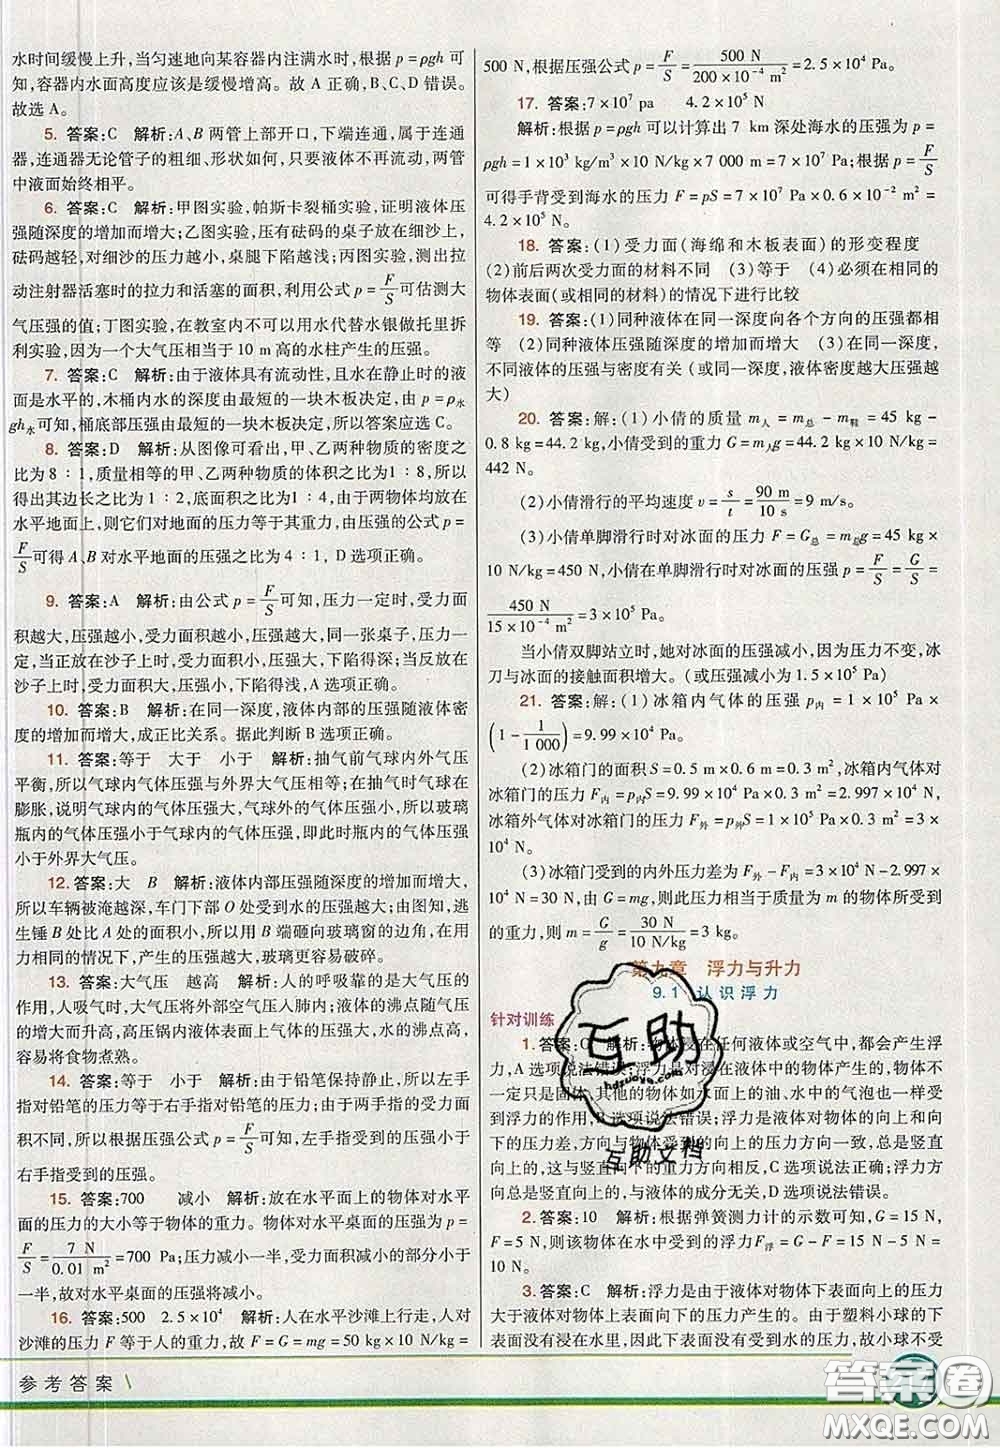 水时间缓慢上升,当匀速地向某容器内注满水时,根据 p=ρgh 可
知,容器内水面高度应该是缓慢增高。故 A 正确,B、C、D 错误。
故选 A。
5. 答案:C 解析:A、B 两管上部开口,下端连通,属于连通
器,连通器无论管子的粗细、形状如何,只要液体不再流动,两管
中液面始终相平。
6. 答案:C 解析:甲图实验,帕斯卡裂桶实验,证明液体压
强随深度的增加而增大;乙图实验,压有砝码的桌子放在细沙上,
砝码越轻,对细沙的压力越小,桌腿下陷越浅;丙图实验,测出拉
动注射器活塞时的拉力和活塞的面积,利用公式 p=F/S 可估测大
气压强的值;丁图实验,在教室内可以用水代替水银做托里拆
利实验,因为一个大气压相当于 10 m 高的水柱产生的压强。
7. 答案:C 解析:由于液体具有流动性,且水在静止时的液
面是水平的,木桶内水的深度由最短的一块木板决定,由 p=ρ水
gh水可知,桶底部压强由最短的一块木板决定,所以答案应选 C。
8. 答案:D 解析:从图像可看出,甲、乙两种物质的密度之
比为 8∶1,质量相等的甲、乙两种物质的体积之比为 1∶8,所以
得出其边长之比为 1∶2,底面积之比为 1∶4,由于两物体均放在
水平地面上,则它们对地面的压力等于其重力,由压强的公式 p=
F/S 可得 A、B 对水平地面的压强之比为 4∶1,D 选项正确。
9. 答案:A 解析:由公式 p=F/S 可知,压力一定时,受力面
积越大,压强越小,受力面积越小,压强越大,同一张桌子,压力一
定,当正放在沙子上时,受力面积小,压强大,下陷得深;当反放在
沙子上时,受力面积大,压强小,下陷得浅,A 选项正确。
10. 答案:B 解析:在同一深度,液体内部的压强随液体密
度的增加而增大,成正比关系。据此判断 B 选项正确。
11. 答案:等于 大于 小于 解析:抽气前气球内外气压
平衡,所以气球内气体压强与外界大气压相等;在抽气时气球在
膨胀,说明气球内的气体压强大,气球外的气体压强小,所以玻璃
瓶内的气体压强小于气球内的气体压强,即此时瓶内的气体压强
小于外界大气压。
12. 答案:大 B 解析:液体内部压强随深度的增加而增大,
所以车辆被淹越深,车门下部 O 处受到水的压强越大;由图知,逃
生锤 B 处比 A 处的受力面积小,所以用 B 端砸向玻璃窗的九角,在
用力相同的情况下,产生的压强越大,玻璃更容易破碎。
13. 答案:大气压 越高 解析:人的呼吸靠的是大气压的
作用,人吸气时,大气压将外部空气压入肺内;液体的沸点随气压
的增大而升高,高压锅内液体表面上气体的压强大,液体的沸点高,
容易将食物煮熟。
14. 答案:等于 小于 解析:由于铅笔保持静止,所以左手
指对铅笔的压力等于右手指对铅笔的压力;由于两手指的受力面
积不同,所以根据压强公式 p=F/S 可知,左手指受到的压强小于
右手指受到的压强。
15. 答案:700 减小 解析:放在水平面上的物体对水平
面的压力的大小等于物体的重力。物体对水平桌面的压强 p=
F/S=7 N/0.01 m²=700 Pa;压力减小一半,受力面积减小的部分小于
一半,故对水平桌面的压强将减小。
16. 答案:500 2.5×10⁴ 解析:人在水平沙滩上行走,人对
沙滩的压力 F 等于人的重力,故 F=G=mg=50 kg×10 N/kg=
500 N,根据压强公式 p=F/S=500 N/200×10⁻⁴ m²=2.5×10⁴ Pa。
17. 答案:7×10⁷ pa 4.2×10⁵ N
解析:根据 p=ρgh 可以计算出 7 km 深处海水的压强为 p=
ρgh=1×10³ kg/m³×10 N/kg×7 000 m=7×10⁷ Pa;根据 p=F/S
可得手背受到海水的压力 F=pS=7×10⁷ Pa×0.6×10⁻² m²=
4.2×10⁵ N。
18. 答案:(1)受力面(海绵和木板表面)的形变程度
(2)前后两次受力面的材料不同 (3)等于 (4)必须在相同的
物体表面(或相同的材料)的情况下进行比较
19. 答案:(1)同种液体在同一深度向各个方向的压强都相
等 (2)同种液体压强随深度的增加而增大 (3)在同一深度,
不同液体的压强与密度有关(或同一深度,液体密度越大压强越
大)
20. 答案:解:(1)小倩的质量 m人=m总-m鞋=45 kg-
0.8 kg=44.2 kg,小倩受到的重力 G=m人g=44.2 kg×10 N/kg=
442 N。
(2)小倩滑行的平均速度 v=s/t=90 m/10 s=9 m/s。
(3)小倩单脚滑行时对冰面的压力 F=G总=m总g=45 kg×
10 N/kg=450 N,小倩在单脚滑行时对冰面的压强 p=F/S=G/S=
450 N/15×10⁻⁴ m²=3×10⁵ Pa。
当小倩双脚站立时,她对冰面的压强减小,因为压力不变,冰
刀与冰面的接触面积增大。(或压强减小为 1.5×10⁵ Pa)
21. 答案:解:(1)冰箱内气体的压强 p内=1×10⁵ Pa×
(1-1/1 000)=9.99×10⁴ Pa。
(2)冰箱门的面积 S=0.5 m×0.6 m=0.3 m²,冰箱内气体对
冰箱门的压力 F内=p内S=9.99×10⁴ Pa×0.3 m²=2.997×10⁴ N,
冰箱外气体对冰箱门的压力 F外=p外S=1×10⁵ Pa×0.3 m²=3×
10⁴ N。
(3)冰箱门受到的内外压力差为 F外-F内=3×10⁴ N-2.997×
10⁴ N=30 N,由 G=mg,则此压力相当于质量为 m 的物体所受到
的重力,则 m=G/g=30 N/10 N/kg=3 kg。
第九章 浮力与升力
9.1 认识浮力
针对训练
1. 答案:C 解析:物体浸在任何液体或空气中,都会产生浮
力,A 选项说法错误;浮力是对浸在液体中的所有物体的作用,不
只是固体,其他的物体如水面上的油、水中的气泡也一样受到
受浮力的作用,B 选项说法错误;浮力是液体对物体的向上和向下
的压力差,方向与物体受到的向上的压力方向一致,总是竖直向上的,C 选项说法正确;浮力
方向总是竖直向上的,与液体的成分无关,D 选项说法错误。
2. 答案:10 解析:根据弹簧测力计的示数可知,G=15 N,
F=5 N,则该物体在水中受到的浮力 F浮=G-F=15 N-5 N=
10 N。
3. 答案:C 解析:浮力是由于液体对物体下表面向上的压力
大于液体对物体上表面向下的压力产生的。由于塑料小球的下
表面没有浸在水里,因此下表面没有受到水的压力,故小球不受
参考答案
互助
hdzuoye.com
互助文档
答案圈
MXQE.COM